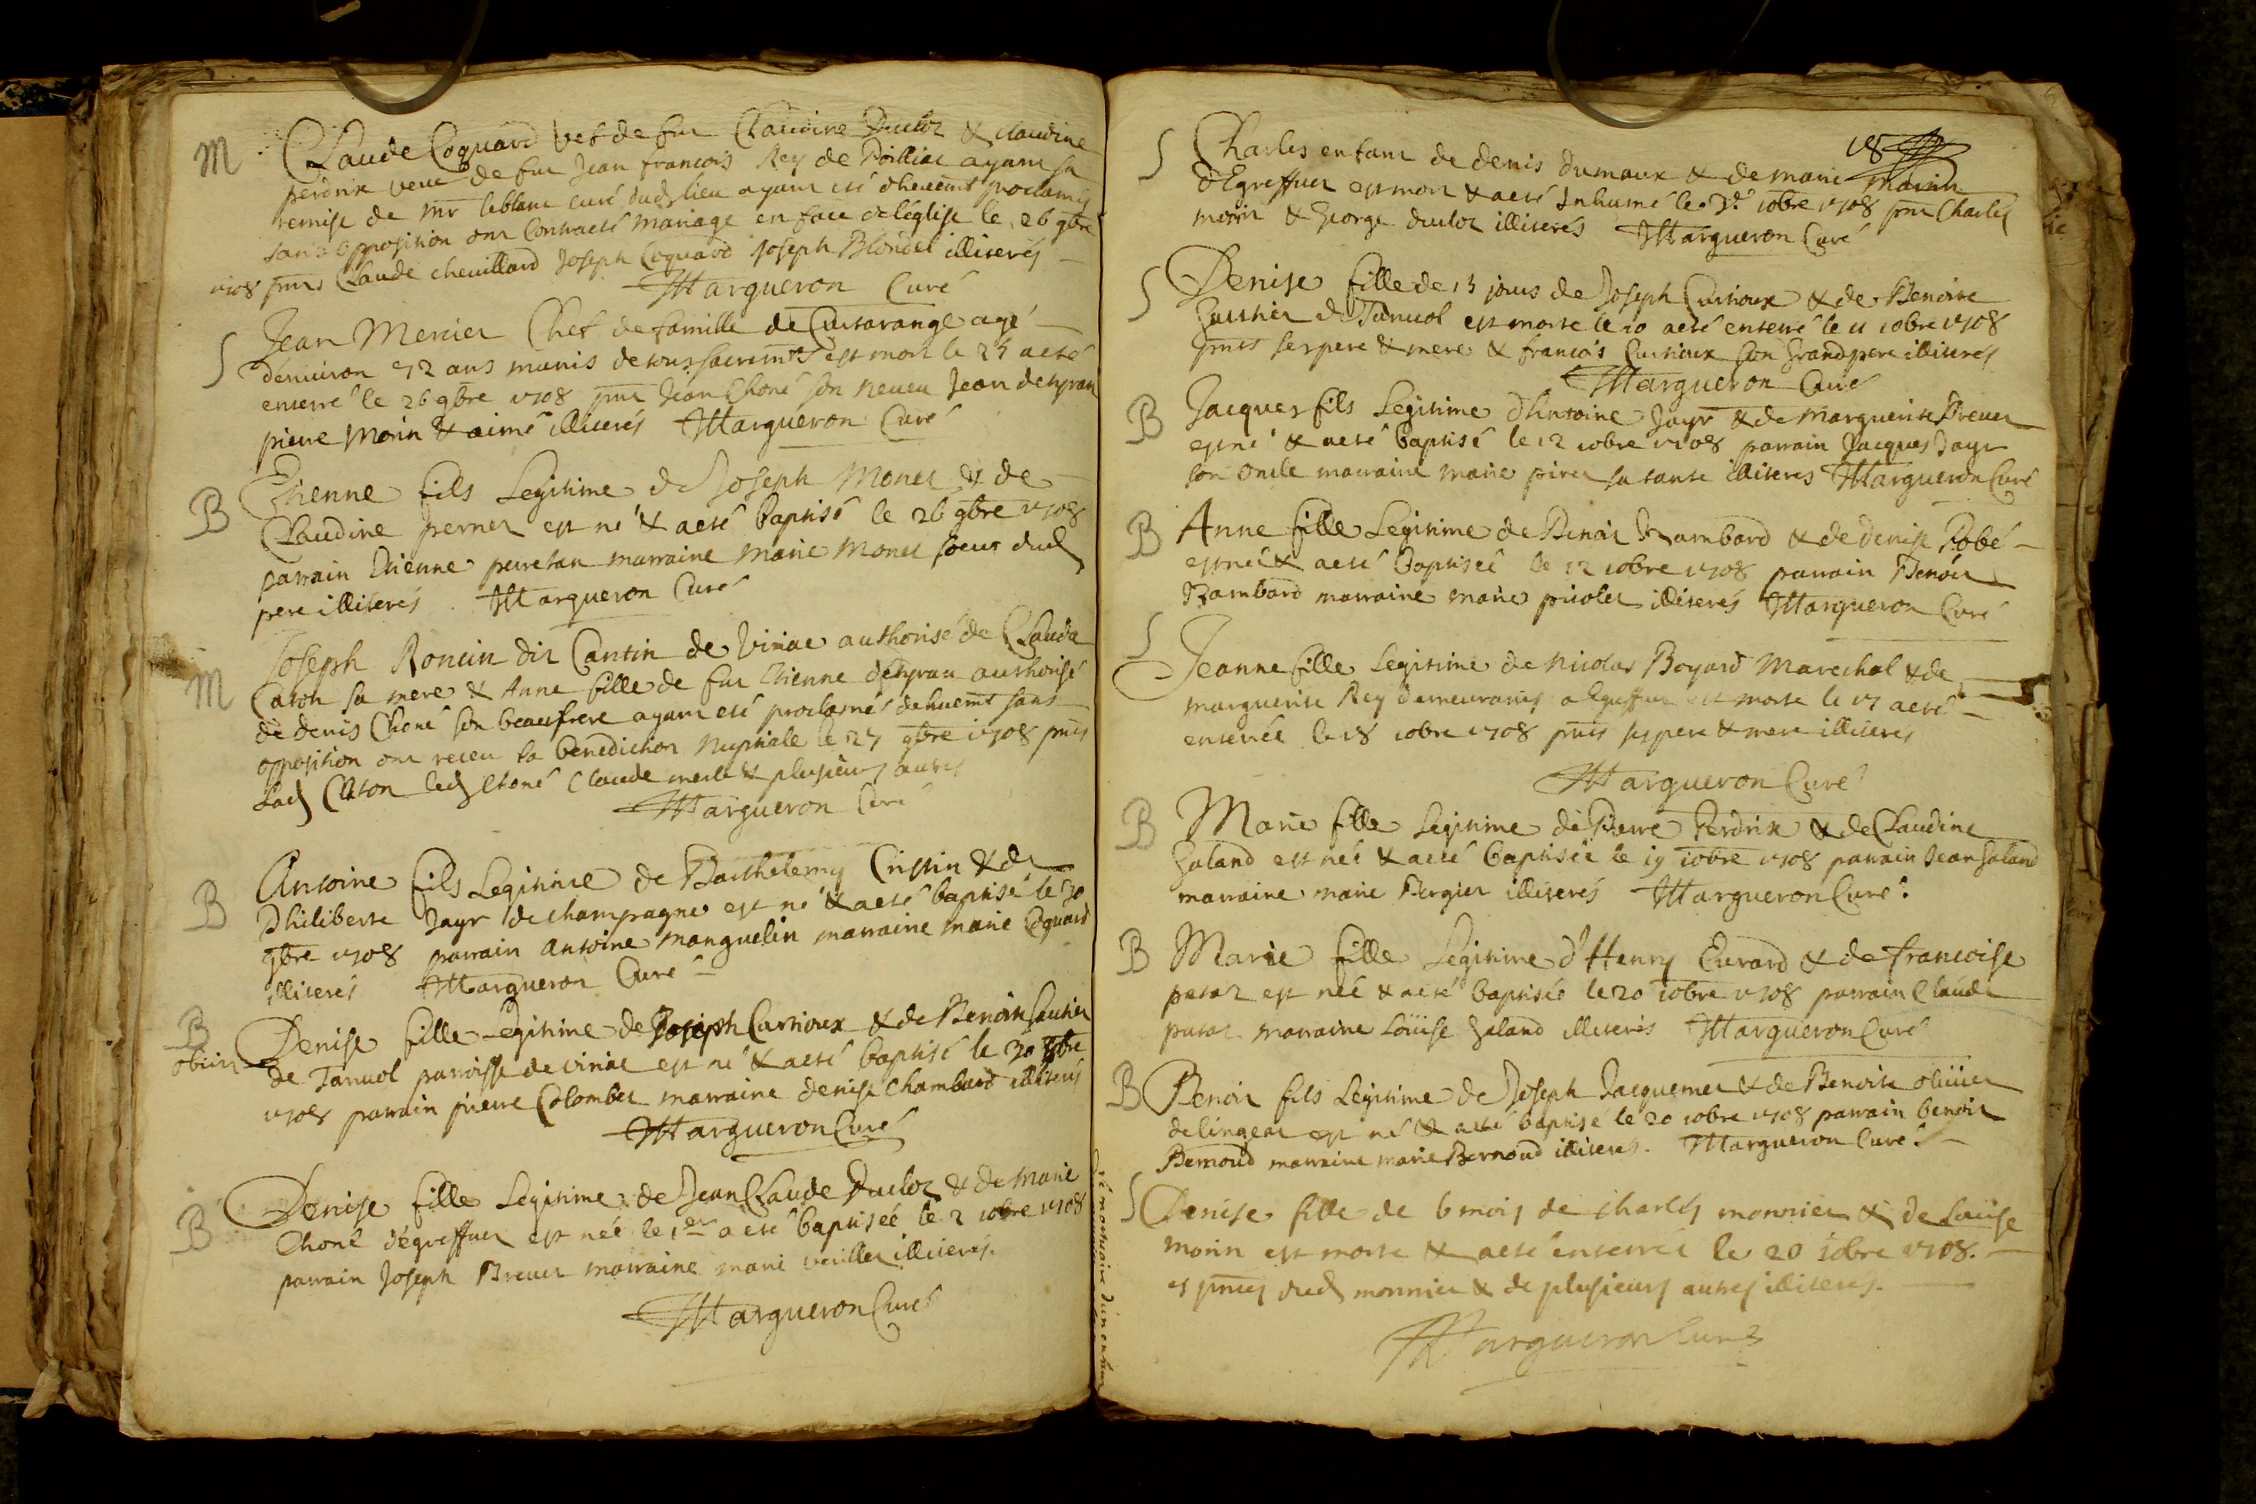 M
Claude Coquard vef de fue Claudine Duclos & claudine
perdrix veuve de fut Jean francois Rey de Poilliac ayant sa
remise de mr leblanc curé dud lieu ayant eté dheuemt proclamés
sans opposition ont Contracté mariage en face de léglise le 26 9bre
1708 pnts Claude chevillard Joseph Coquard Joseph Blondel illiterés
Margueron Curé
S
Jean Mercier Chef de famille de Curtarange agé
denviron 72 ans munis de tous sacremts est mort le 25 a eté
enterré le 26 9bre 1708 pnt Jean Choné son neveu Jean
pierre Morin & aimé illiterés Margueron Curé
B
Etienne fils Legitime de Joseph Monet & de
Claudine perner est né & a eté baptisé le 26 9bre 1708
parrain Etienne marraine Marie Monet soeur dud
pere illiterés Margueron Curé
M
Joseph Roncin dit Cantin de Viriac authorisé de Claude
Caton sa mere & Anne fille de fut Etienne authorisé
de denis Choné son beaufrere ayant eté proclamés dehuemt sans
opposition ont receu la benediction Nuptiale le 27 9bre 1708 pnts
Lad Caton led Choné Claude & plusieurs autres
Margueron Curé
B
Antoine fils Legitime de Barthelemy Crispin & de
Philiberte Jayr de champagne est né & a eté baptisé le 30
9bre 1708 parrain antoine manguelin marraine marie Coquard
illiterés Margueron Curé
B
obiit
Denise fille Legitime de Joseph Curtioux & de Benoite Gautier
de Tanvol parroisse de viriac est né & a eté baptisé le 30 9bre
1708 parrain pierre Colomber marraine denise Chambard illiterés
Margueron Curé
B
Denise fille Legitime de Jean Claude Duclos & de Marie
Choné dégreffuel est née le 1er a eté baptisée le 2 10bre 1708
parrain Joseph Brevet marraine marie veuillet illiterés.
Margueron Curé
18
S
Charles enfant de denis dumaux & de marie morin
d'Egreffuel est mort & a eté Inhumé le 3e 10bre 1708 pnt Charles
morin & George duclos illiterés Margueron Curé
S
Denise fille de 13 jours de Joseph Curtioux & de Benoite
Gautier de Tanvol est morte le 10 a eté enterré le 11 10bre 1708
pnts ses pere & mere & francois Curtioux son grandpere illiterés
Margueron Curé
B
Jacques fils Legitime d'Antoine Jayr & de marguerite Brevet
est né & a eté baptisé le 12 10bre 1708 parrain Jacques Jayr
son oncle marraine marie piret sa tante illiteres Margueron Curé
B
Anne fille Legitime de Benoit Rambard & de denise Robé
est née & a eté baptisée le 12 10bre 1708 parrain Benoit
Rambard marraine marie picolet illiterés Margueron Curé
S
Jeanne fille Legitime de Nicolas Boyard Marechal & de
marguerite Rey demeurants a Egreffuel est morte le 17 a eté
enterrée le 18 10bre 1708 pnts ses pere & mere illiteres
Margueron Curé
B
Marie fille Legitime de Pierre Perdrix & de Claudine
Galand est née & a eté baptisée le 19 10bre 1708 parrain Jean Galand
marraine marie Bergier illiterés Margueron Curé.
B
Marie fille Legitime d'Henry Evrard & de francoise
putot est née & a eté baptisée le 20 10bre 1708 parrain Claude
putot marraine Loüise Galand illiterés Margueron Curé
B
Benoit fils Legitime de Joseph Jacquemet & de Benoite olivier
de lingeat est né & a eté baptisé le 20 10bre 1708 parrain benoit
Bernoud marraine marie Bernoud illiteres. Margueron Curé
S
Denise fille de 6 mois de charles monnier & de Loüise
morin est morte & a eté enterrée le 20 10bre 1708.
es pntes dud monnier & de plusieurs autres illiteres.
Margueron Curé